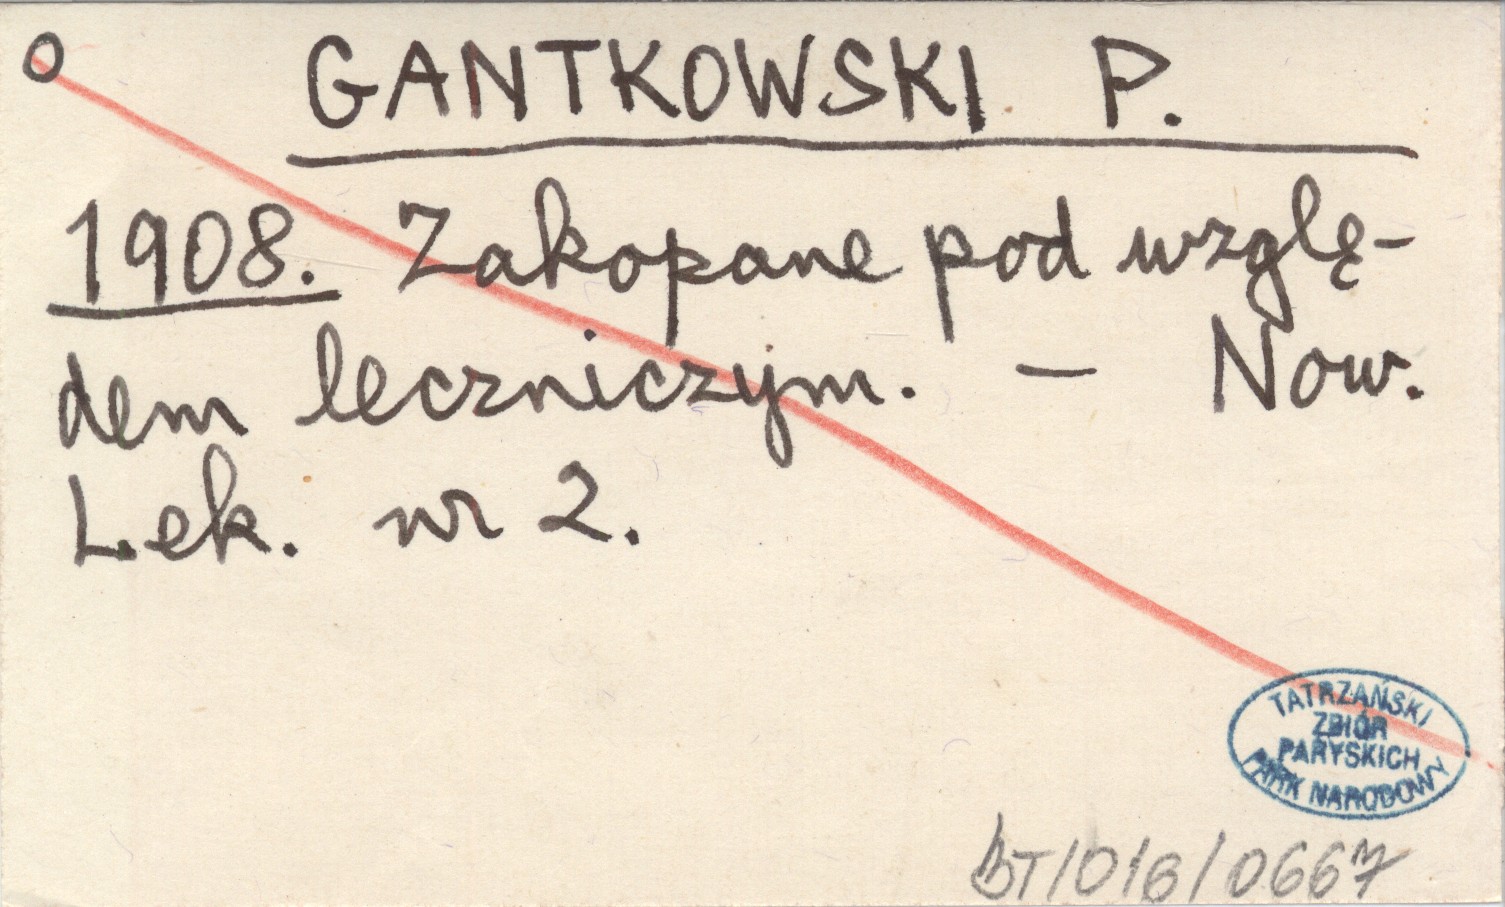 GANTKOWSKI P.
1908. Zakopane pod wzglę-
dem leczniczym. — Now.
Lek. nr 2.
TATRZAŃSKI
ZBIÓR
PARYSKICH
PARK NARODOWY
BT/016/0667